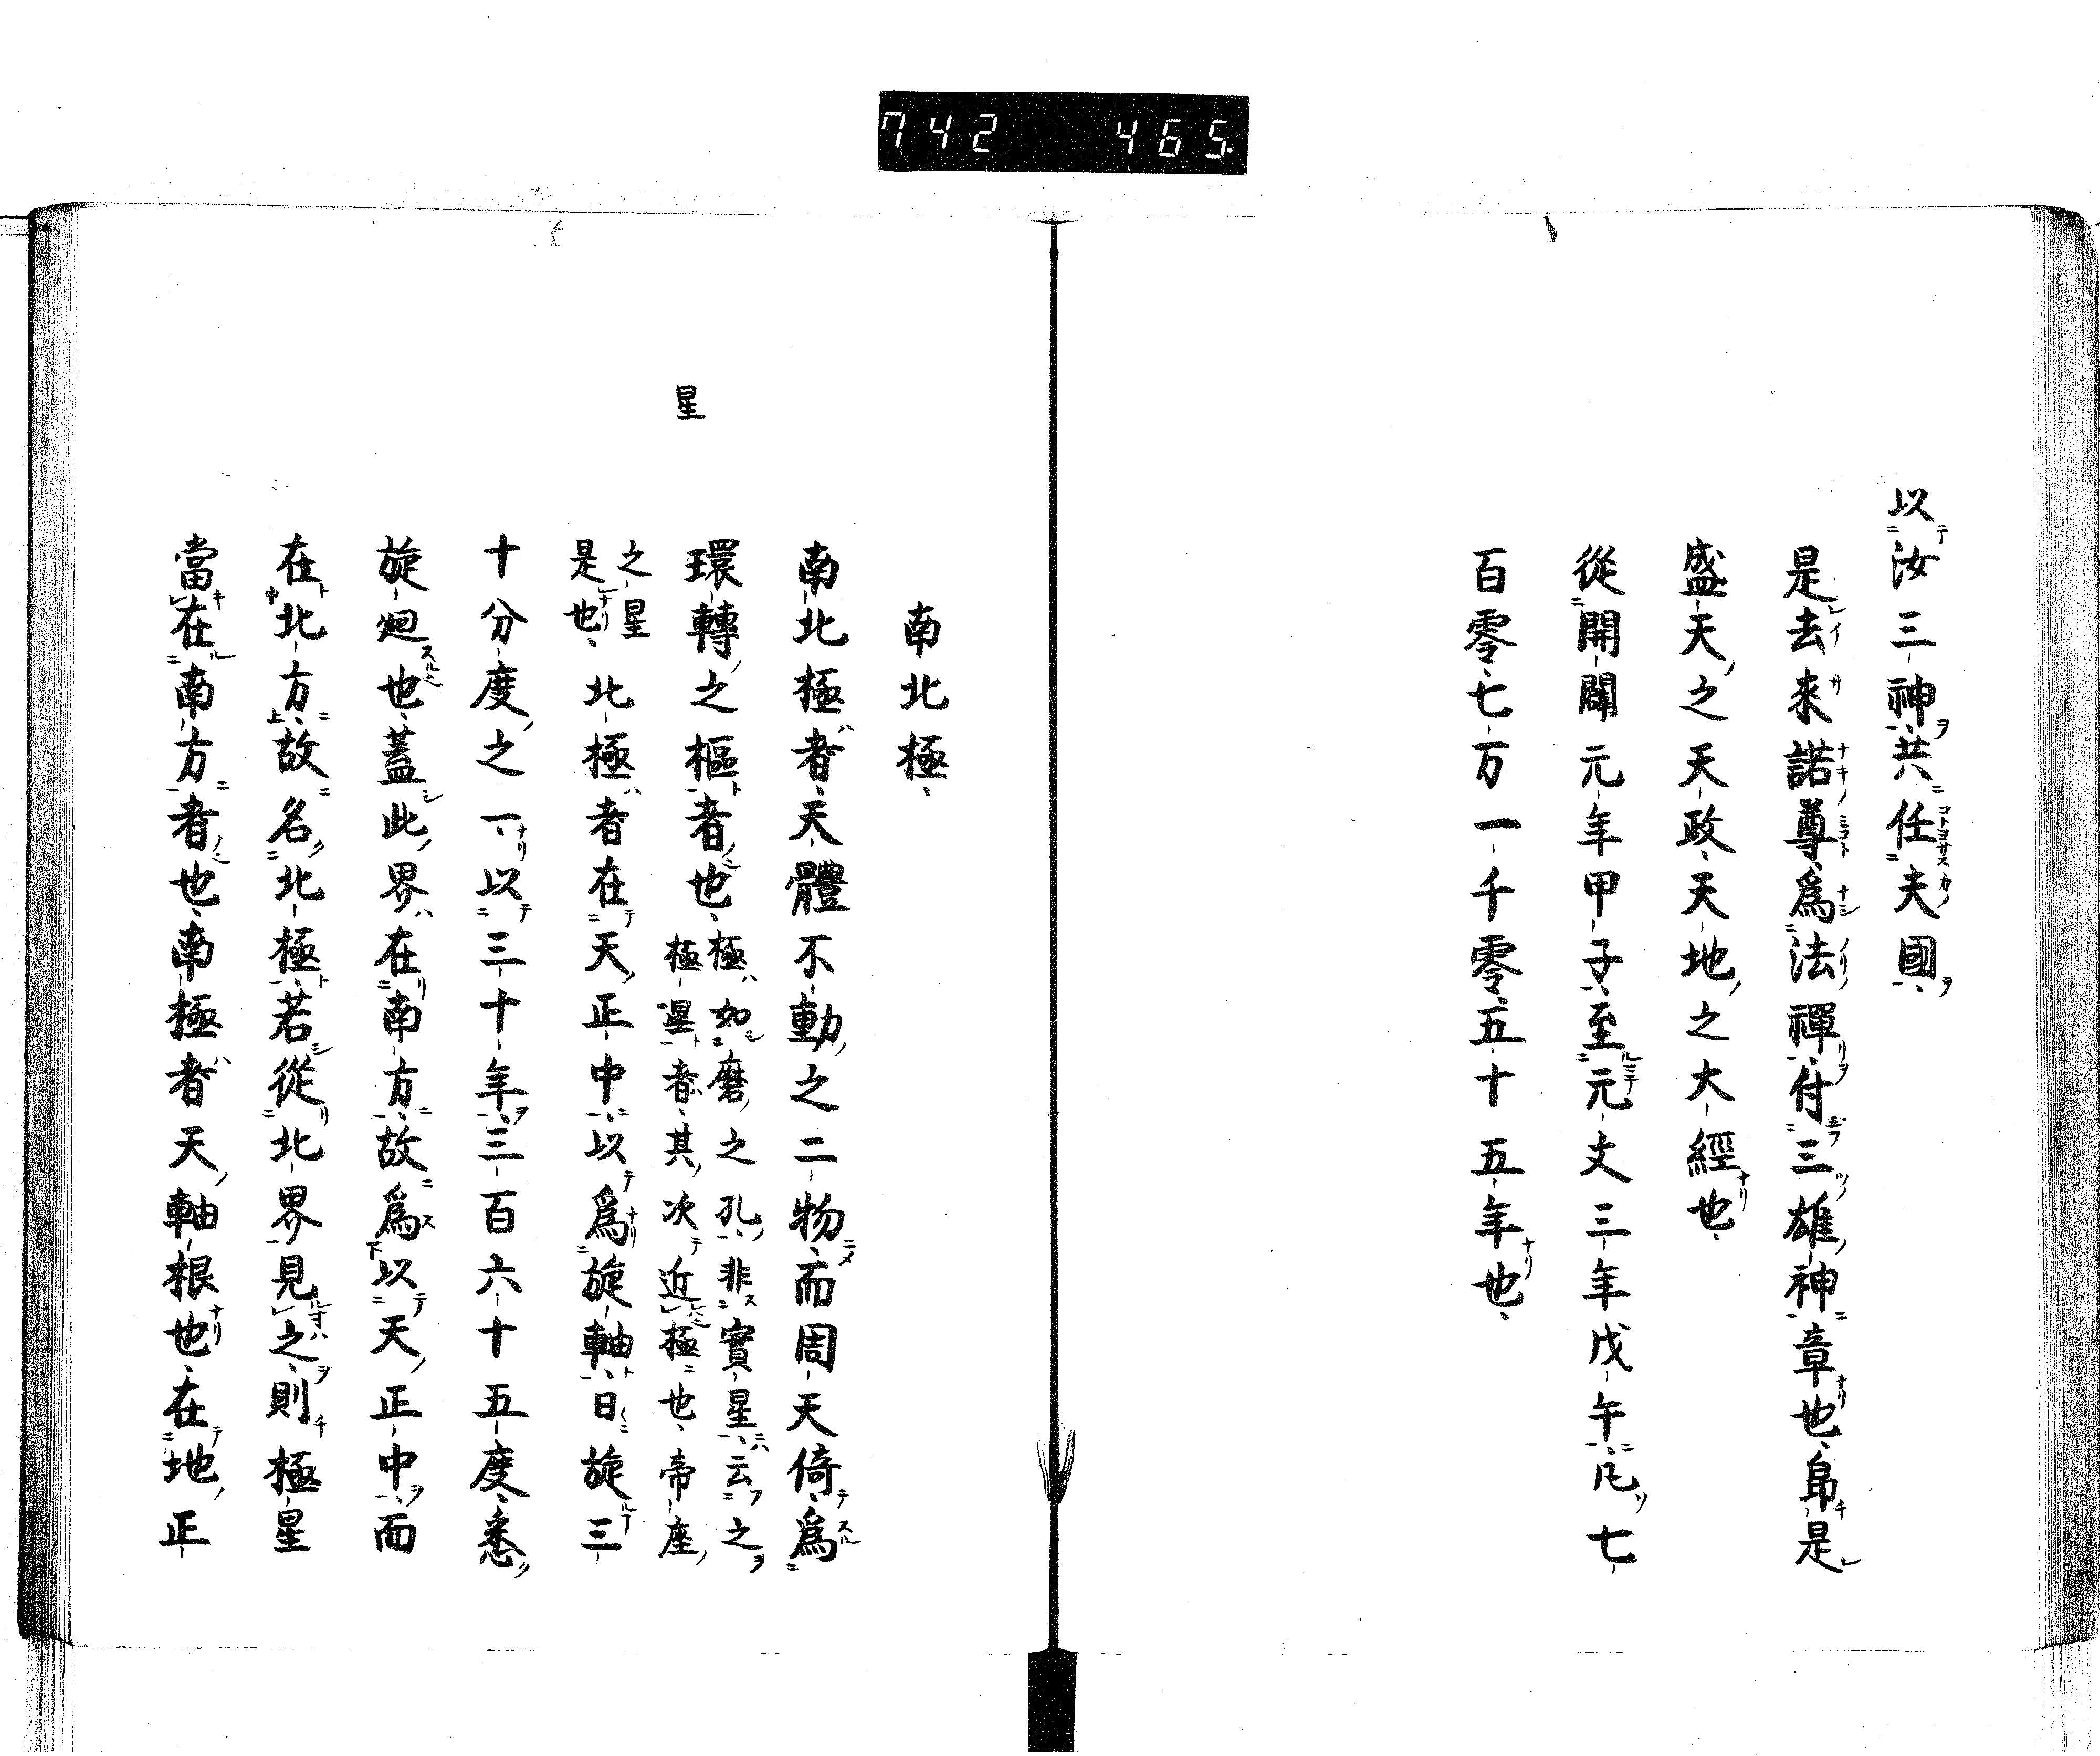 742 465
以汝三神共任夫國
是去來諾尊爲法禪付三雄神章也帛是
盛天之天政天地之大經也
從開闢元年甲子至元文三年戊午凡七
百零七万一千零五十五年也
南北極
南北極者天體不動之二物而周天倚爲
星
環轉之樞者也極如磨之孔非實星云之
極星者其次近極也帝座
之星
是也北極者在天正中以爲旋軸日旋三
十分度之一以三十年三百六十五度悉
旋廻也蓋此界在南方故爲以天正中而
在北方故名北極若從北界見之則極星
當在南方者也南極者天軸根也在地正